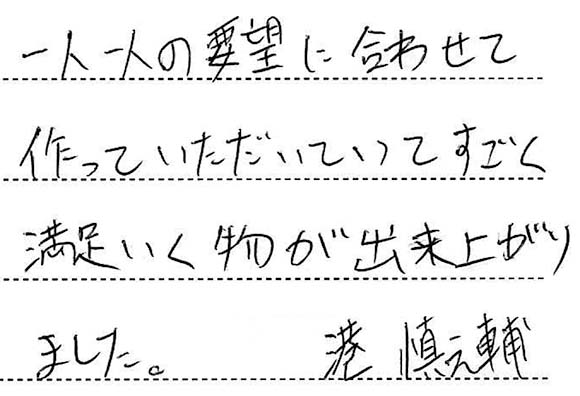 一人一人の要望に合わせて
作っていただいていてすごく
満足いく物が出来上がり
ました。 港 慎之輔